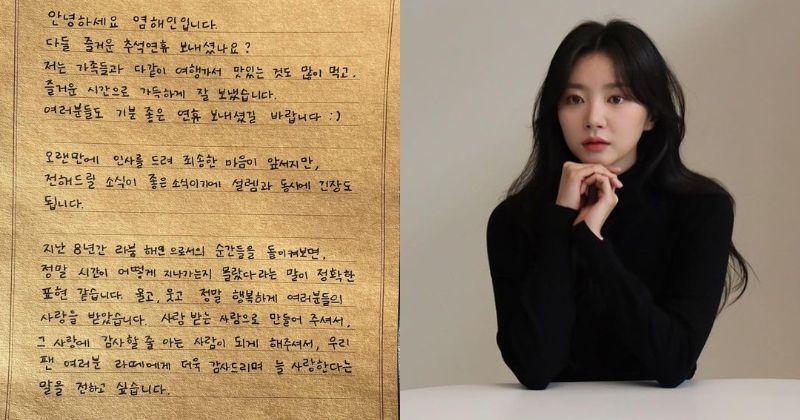 안녕하세요 염해인입니다.
다들 즐거운 추석연휴 보내셨나요?
저는 가족들과 다같이 여행가서 맛있는 것도 많이 먹고,
즐거운 시간으로 가득하게 잘 보냈습니다.
여러분들도 기분 좋은 연휴 보내셨길 바랍니다 :)
오랜만에 인사를 드려 죄송한 마음이 앞서지만,
전해드릴 소식이 좋은소식이기에 설렘과 동시에 긴장도
됩니다.
지난 8년간 라붐 해인으로서의 순간들을 돌이켜보면,
정말 시간이 어떻게 지나가는지 몰랐다라는 말이 정확한
표현 같습니다. 울고, 웃고 정말 행복하게 여러분들의
사랑을 받았습니다. 사랑 받는 사람으로 만들어 주셔서,
그 사랑에 감사할 줄 아는 사람이 되게 해주셔서, 우리
팬 여러분 라떼에게 더욱 감사드리며 늘 사랑한다는
말을 전하고 싶습니다.